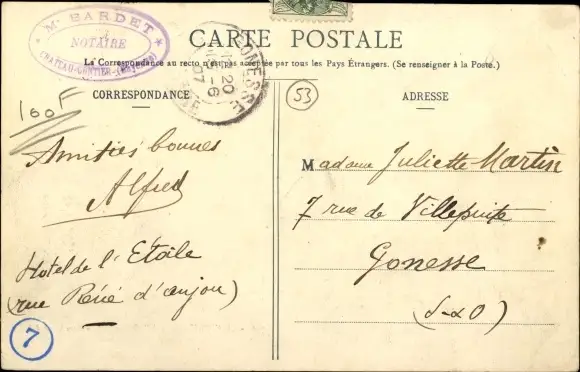 Me BARDET
NOTAIRE
CHATEAU-GONTIER
CARTE POSTALE
La Correspondance au recto n'est pas acceptée par tous les Pays Étrangers. (Se renseigner à la Poste.)
GONESSE
20
07
CORRESPONDANCE
160F
Amitiés bonnes
Alfred
Hotel de l'Etoile
(rue René d'anjou)
7
53
ADRESSE
Madame Juliette Martin
7 rue de Villepinte
Gonesse
(S-&O)